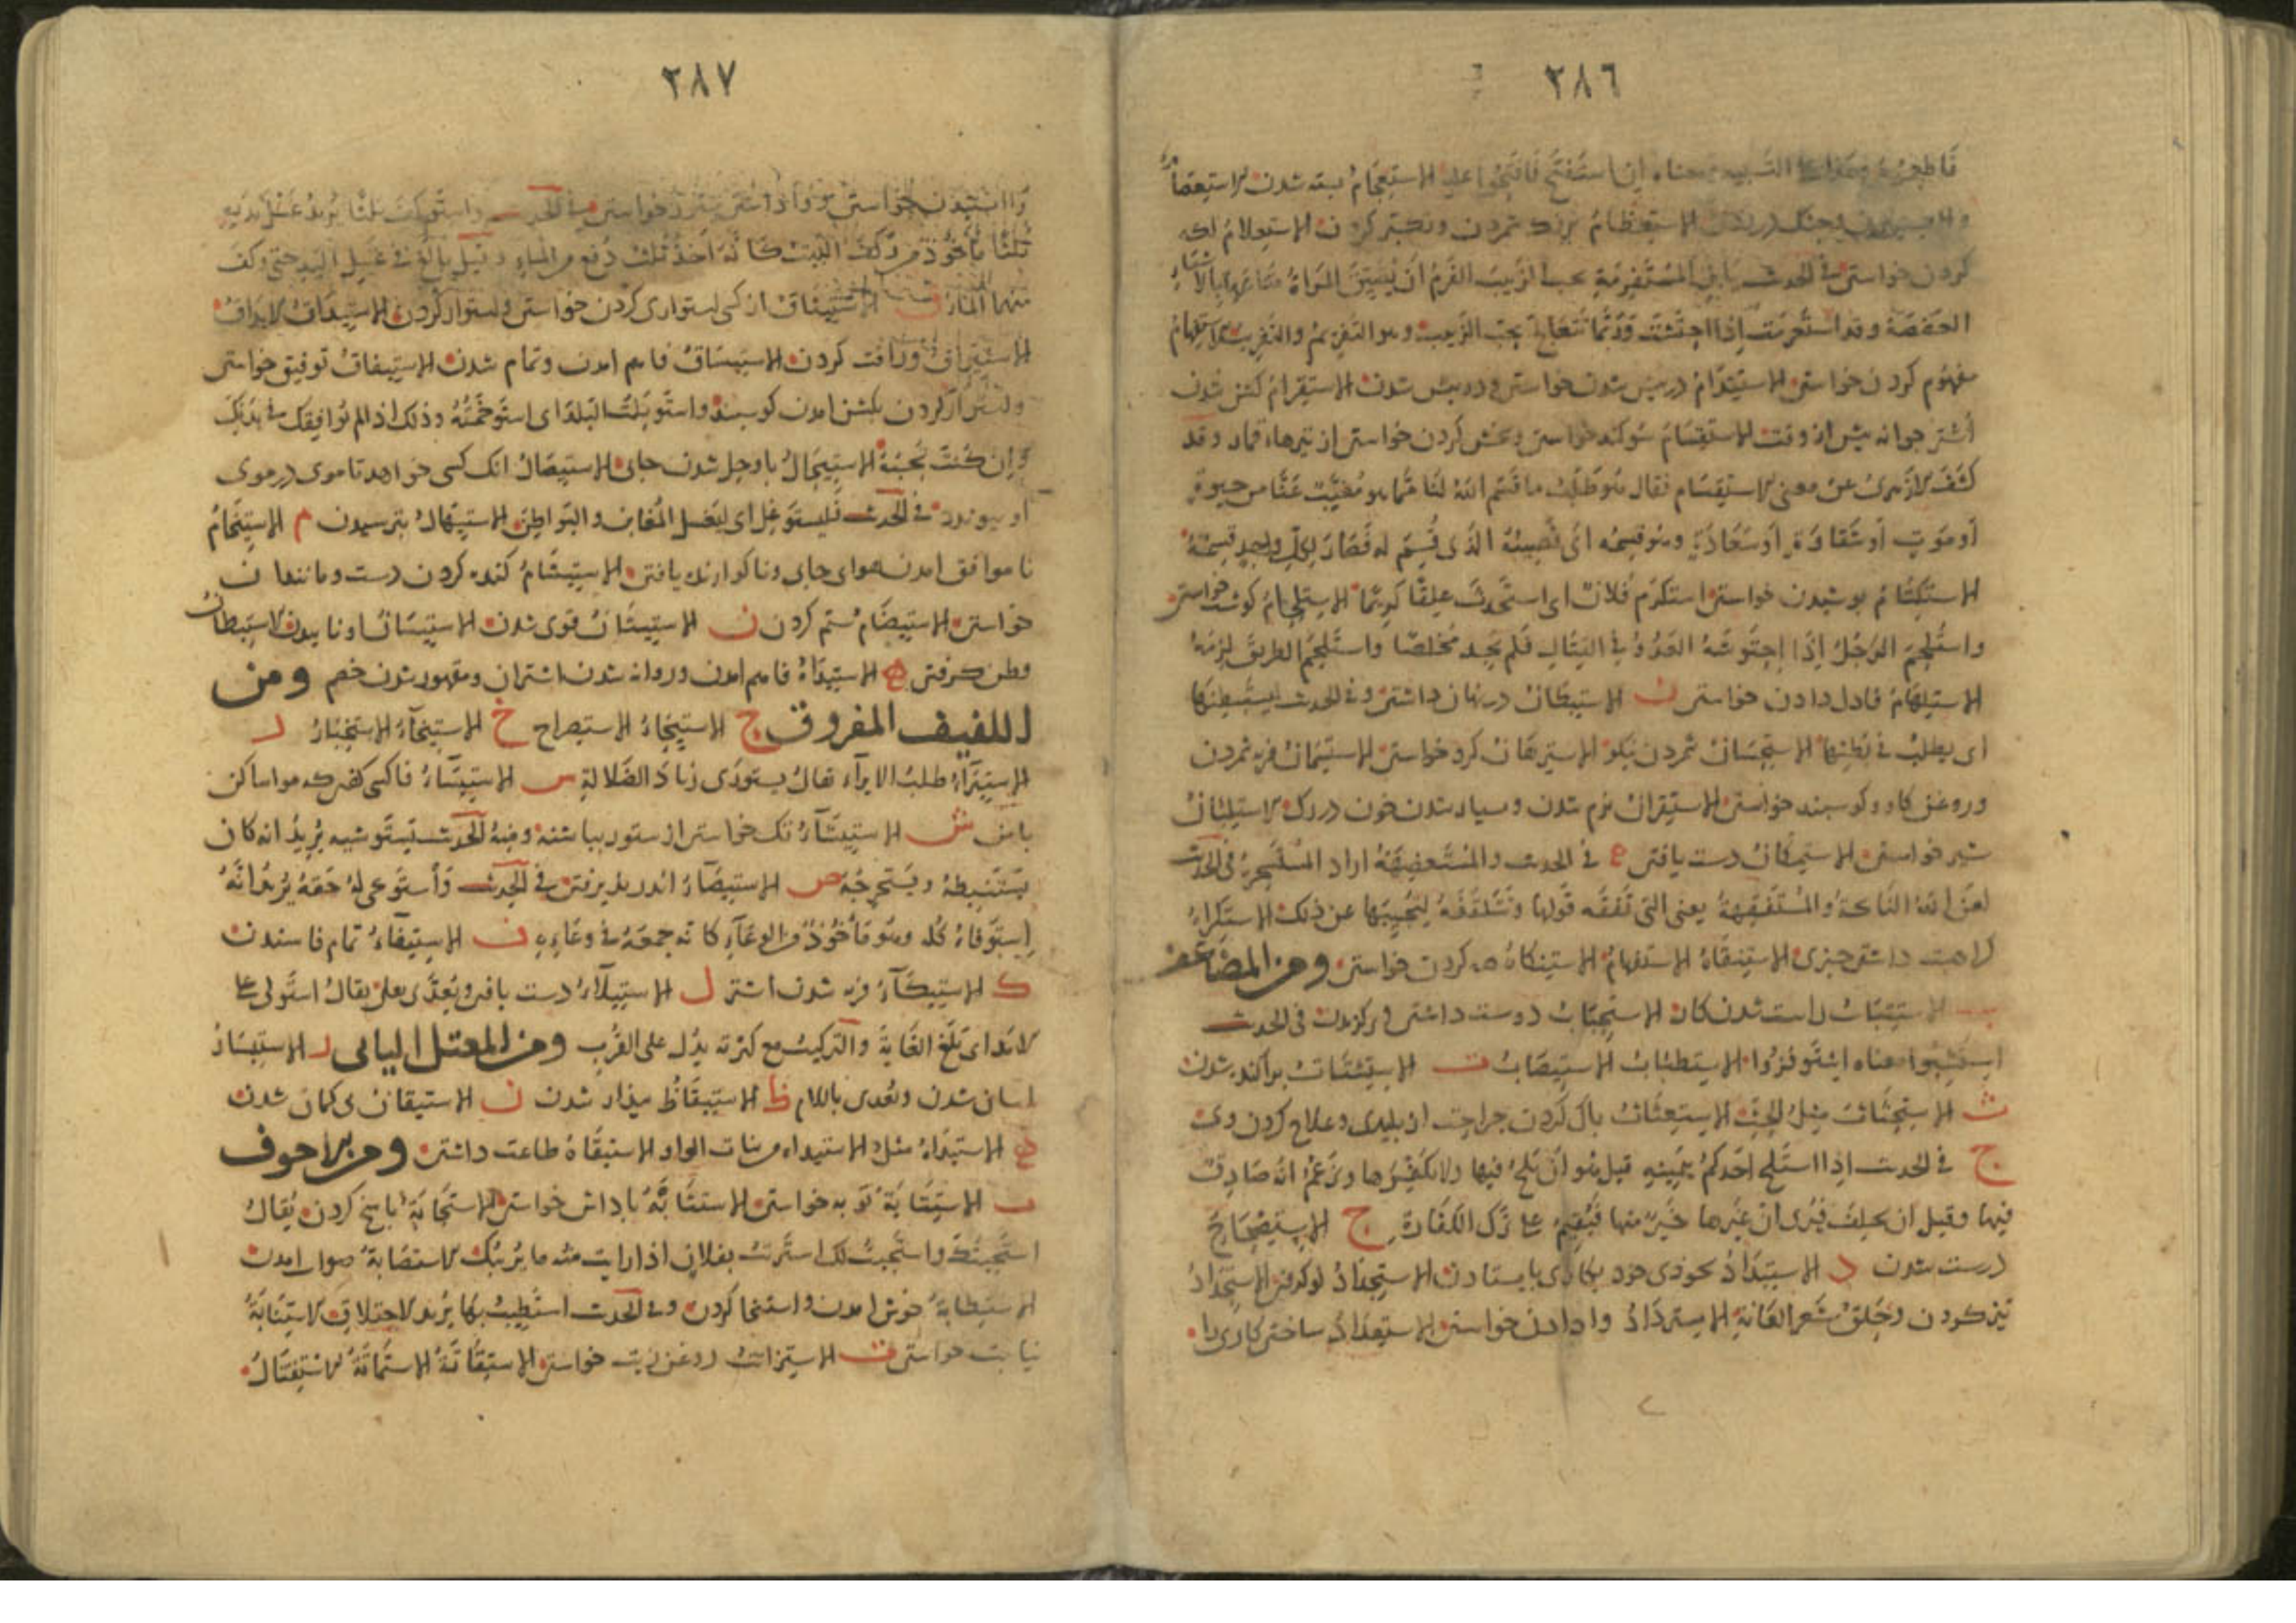 ٢٨٦
فاطعموه التشبيه معناه ان استفتح فافتحوا عليه الاستعجام بسته شدن الاستعصام
الاستعظام بزرك شمردن وتكبر كردن الاستعلام اكه
كردن خواستن في الحديث المستفرمة بحب الزبيب الفرم ان تضيق المراة متاعها بالاشياء
العفصة وقد استفرمت اذا احتشت وربما تتعالج بحب الزبيب وهو التفريم والتفريب الاستفهام
مفهوم كردن خواستن الاستقدام در پيش شدن خواستن و در پيش شدن الاستقرام كشن شدن
اشتر جوانه پيش از وقت الاستقسام سوكند خواستن وبخش كردن خواستن از تيرهاء قمار وقد
كشف الازهرى عن معنى الاستقسام فقال هو طلب ما قسم الله لنا مما هو مغيب عنا من حيوة
او موت او شقاوة او سعادة وهو قسمه اى نصيبه الذى قسم له فصار لكل واحد قسمة
الاستكتام پوشيدن خواستن استكرم فلان اى استحدث علقا كريما الاستلحام كوشت خواستن
واستلحم الرجل اذا احتوشه العدو في القتال فلم يجد مخلصا واستلحم الطريق لزمه
الاستلهام فادل دادن خواستن ن الاستبطان در نهان داشتن وفي الحديث يستبطنها
اى يطلب في بطنها الاستحسان شمردن نيكو الاسترهان كرو خواستن الاستسمان فربه شمردن
وروغن كاو وكوسبند خواستن الاستقران نرم شدن وسياه شدن خون در رك الاستلبان
شير خواستن الاستمكان دست يافتن ه في الحديث والمستعضهة اراد المستسحرة في الحديث
لعن الله النائحة والمستفقهة يعنى التى تفقه قولها وتتلقفه لتجيبها عن ذلك الاستكراه
كراهت داشتن چيزى الاستنقاه الاستفهام الاستنكاه كردن خواستن ومن المضاعف
ب الاستتباب راست شدن كار الاستحباب دوست داشتن وبركزيدن في الحديث
استشبوا معناه استوفزوا الاستطباب الاستصباب ت الاستشتات پراكنده شدن
ث الاستحثاث مثل الحث الاستعثاث
ج في الحديث اذا استلج احدكم بيمينه قيل هو ان يلج فيها ولا يكفرها ويزعم انه صادق
فيها وقيل ان يحلف فيرى ان غيرها خير منها فيقيم على ترك الكفارة ح الاستصحاح
درست شدن د الاستبداد بخودى خود بكارى بايستادن الاستجداد نو كرفتن الاستحداد
تيز كردن وحلق شعر العانة الاسترداد وا دادن خواستن الاستعداد ساختن كارى را
٢٨٧
في الحديث واستوكف ثلثا يريد غسل يديه
ثلثا ماخوذ من وكف البيت كانه اخذ ثلث دفع من الماء وقيل بالغ في غسل اليد حتى وكف
منها الماء ق الاستيثاق از كسى استوارى كردن خواستن واستوار كردن الاستيداق الايداق
كردن الاستيساق فاهم امدن وتمام شدن الاستيفاق توفيق خواستن
بكشن امدن كوسبند واستوبلت البلد اى استوخمته وذلك اذا لم توافقك في بدنك
وان كنت تحبه الاستيجال باوجل شدن جاى الاستيصال انك كسى خواهد تا موى در موى
او پيوندد في الحديث فليستوغل اى ليغسل المغابن والبواطن الاستيهال بترسيدن م الاستيخام
ناموافق امدن هواى جاى وناكوارنده يافتن الاستيشام كنده كردن دست ومانند ان
خواستن الاستيضام ستم كردن ن الاستيثان قوى شدن الاستيسان اونا بيدن الاستيطان
وطن كرفتن ه الاستيداه فاهم امدن وروانه شدن اشتران ومقهور شدن خصم ومن
اللفيف المفروق ج الاستيجاء الاستصراح خ الاستيخاء الاستخبار ر
الاستيراء طلب الايراء يقال يستورى زناد الضلالة س الاستيساء فاكسى كفتن كه مواسا كن
با من ش الاستيشاء تك خواستن از ستور بپاشنه ومنه الحديث يستوشيه يريد انه كان
يستنبطه ويستخرجه ص الاستيصاء اندرز پذيرفتن في الحديث واستوعى له حقه يريد انه
استوفاه كله وهو ماخوذ من الوعاء كانه جمعه في وعائه ف الاستيفاء تمام فاستدن
ك الاستيكاء فربه شدن اشتر ل الاستيلاء دست يافتن ويعدى بعلى يقال استولى على
الامد اى بلغ الغاية والتركيب مع كثرته يدل على القرب ومن المعتل اليائى ر الاستيسار
اسان شدن ويعدى باللام ظ الاستيقاظ بيدار شدن ن الاستيقان بى كمان شدن
ه الاستيداه مثل الاستيداه من بنات الواو الاستيقاه طاعت داشتن ومن الاجوف
ب الاستتابة توبه خواستن الاستثابة پاداش خواستن الاستجابة پاسخ كردن يقال
استجبتك واستجبت لك استربت بفلان اذا رايت منه ما يريبك الاستصابة صواب امدن
الاستطابة خوش امدن واستنجا كردن وفي الحديث استطيب بها يريد الاحتلاق الاستنابة
نيابت خواستن ت الاستزاتت روغن زيت خواستن الاستقاتة الاستماتة الاستقتال